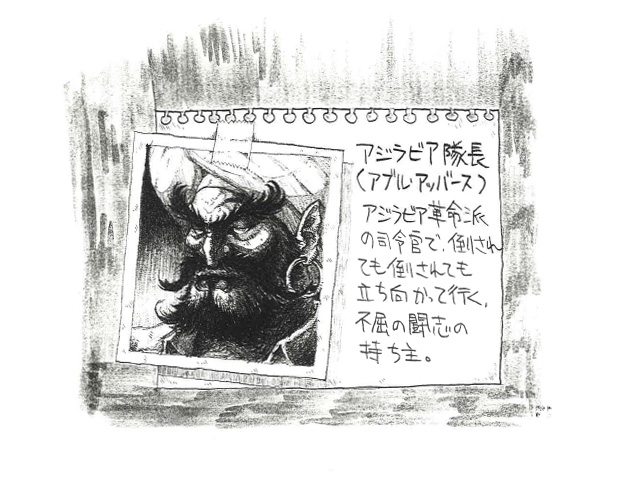 アジラビア隊長
（アブル・アッバース）
アジラビア革命派
の司令官で、倒され
ても倒されても
立ち向かって行く、
不屈の闘志の
持ち主。